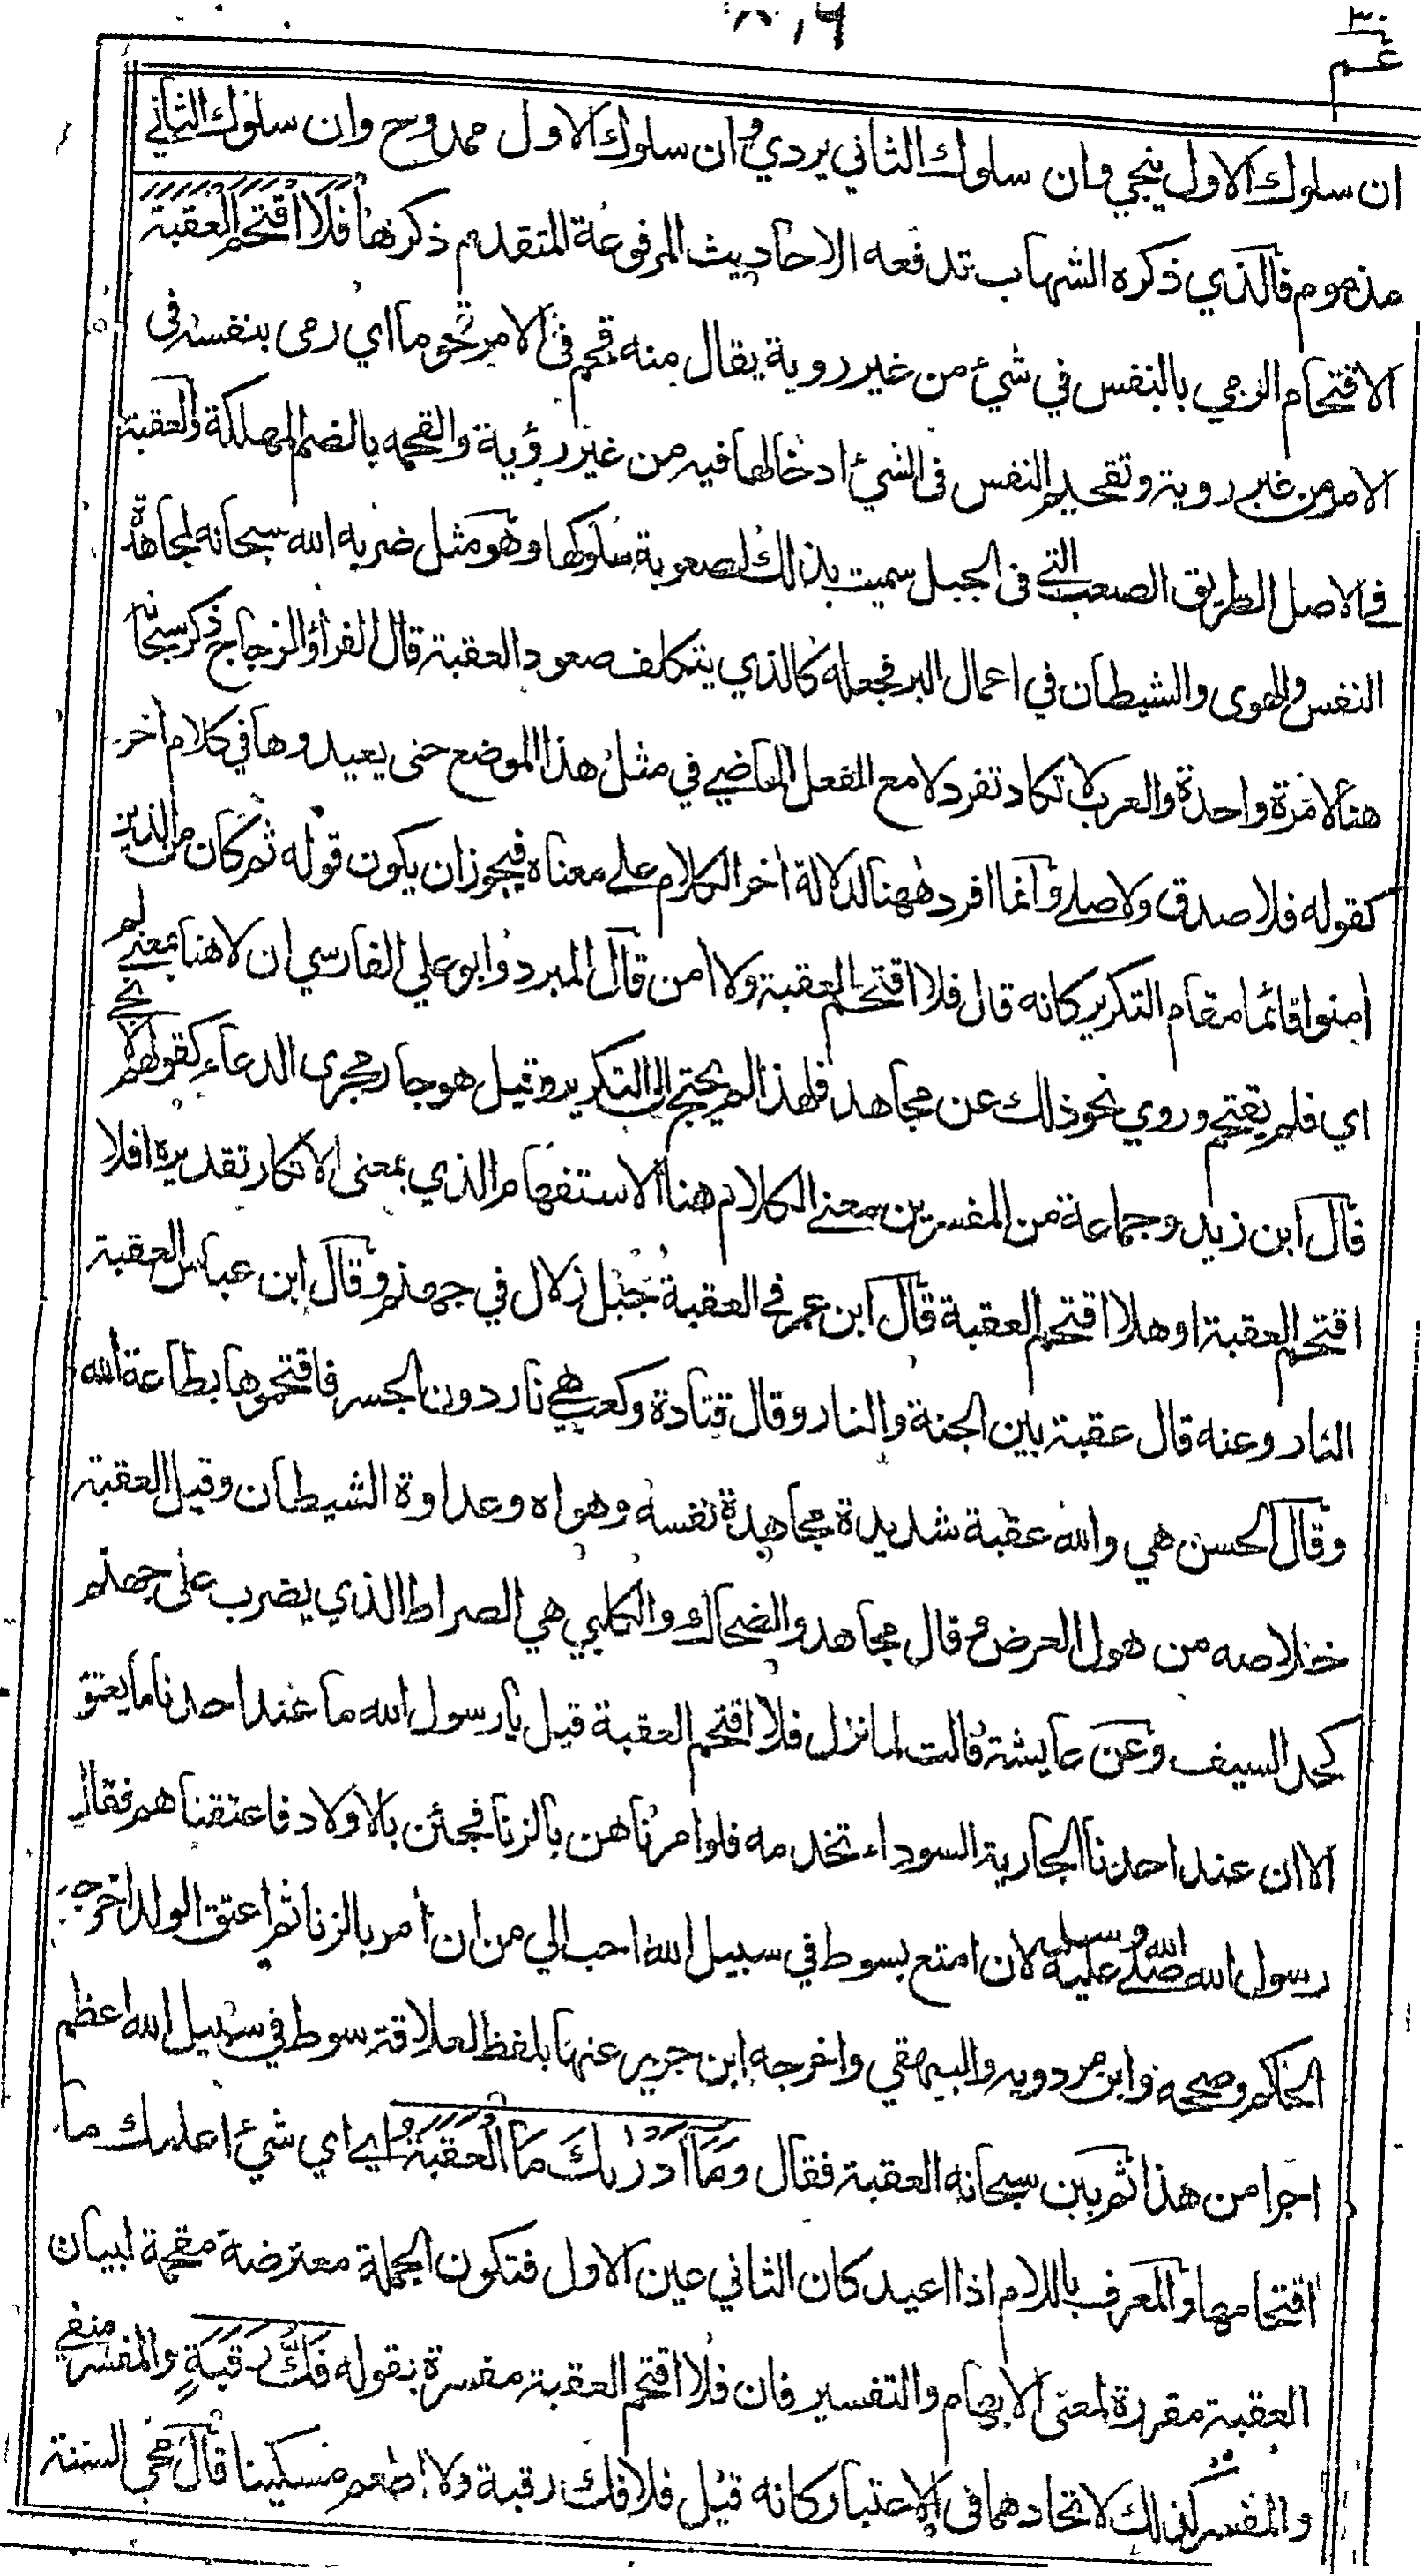 ٣٠
عم
ان سلوك الاول ينجي وان سلوك الثاني يردي وان سلوك الاول ممدوح وان سلوك الثاني
مذموم فالذي ذكره الشهاب تدفعه الاحاديث المرفوعة المتقدم ذكرها فَلَا اقْتَحَمَ الْعَقَبَةَ
الاقتحام الرمي بالنفس في شيء من غير روية يقال منه قحم في الامر قحوما اي رمى بنفسه في
الامر من غير روية وتقحيم النفس في الشيء ادخالها فيه من غير رؤية والقحمه بالضم المهلكة والعقبة
في الاصل الطريق الصعب التي في الجبل سميت بذلك لصعوبة سلوكها وهو مثل ضربه الله سبحانه لمجاهدة
النفس والهوى والشيطان في اعمال البر فجعله كالذي يتكلف صعود العقبة قال الفراء والزجاج ذكر سبحانه
هنا لا مرة واحدة والعرب لا تكاد تفرد لا مع الفعل الماضي في مثل هذا الموضع حتى يعيدوها في كلام اخر
كقوله فلا صدق ولا صلى وانما افرد ههنا لدلالة اخر الكلام على معناه فيجوز ان يكون قوله ثم كان من الذين
امنوا قائما مقام التكرير كانه قال فلا اقتحم العقبة ولا امن قال المبرد وابو علي الفارسي ان لا هنا بمعنى لم
اي فلم يقتحم وروي نحو ذلك عن مجاهد فلهذا لم يحتج الى التكرير وقيل هو جار مجرى الدعاء كقولهم لا نجى
قال ابن زيد وجماعة من المفسرين معنى الكلام هنا الاستفهام الذي بمعنى الانكار تقديره افلا
اقتحم العقبة او هلا اقتحم العقبة قال ابن عمر في العقبة جبل زلال في جهنم وقال ابن عباس العقبة
النار وعنه قال عقبة بين الجنة والنار وقال قتادة وكعب هي نار دون الجسر فاقتحموها بطاعة الله
وقال الحسن هي والله عقبة شديدة مجاهدة نفسه وهواه وعداوة الشيطان وقيل العقبة
خلاصه من هول العرض وقال مجاهد والضحاك والكلبي هي الصراط الذي يضرب على جهنم
كحد السيف وعن عايشة قالت لما نزل فلا اقتحم العقبة قيل يا رسول الله ما عند احدنا ما يعتق
الا ان عند احدنا الجارية السوداء تخدمه فلو امرناهن بالزنا فجئن بالاولاد فاعتقناهم فقال
رسول الله صلى الله عليه وسلم لان امتع بسوط في سبيل الله احب الي من ان أمر بالزنا ثم اعتق الولد اخرجه
الحاكم وصححه وابن مردويه والبيهقي واخرجه ابن جرير عنها بلفظ لعلاقة سوط في سبيل الله اعظم
اجرا من هذا ثم بين سبحانه العقبة فقال وَمَا أَدْرٰىكَ مَا الْعَقَبَةُ اي اي شيء اعلمك ما
اقتحامها والمعرف باللام اذا اعيد كان الثاني عين الاول فتكون الجملة معترضة مقحمة لبيان
العقبة مقررة لمعنى الابهام والتفسير فان فلا اقتحم العقبة مفسرة بقوله فَكُّ رَقَبَةٍ والمفسر منفي
والمفسر كذلك لاتحادهما في الاعتبار كانه قيل فلا فك رقبة ولا اطعم مسكينا قال محي السنة